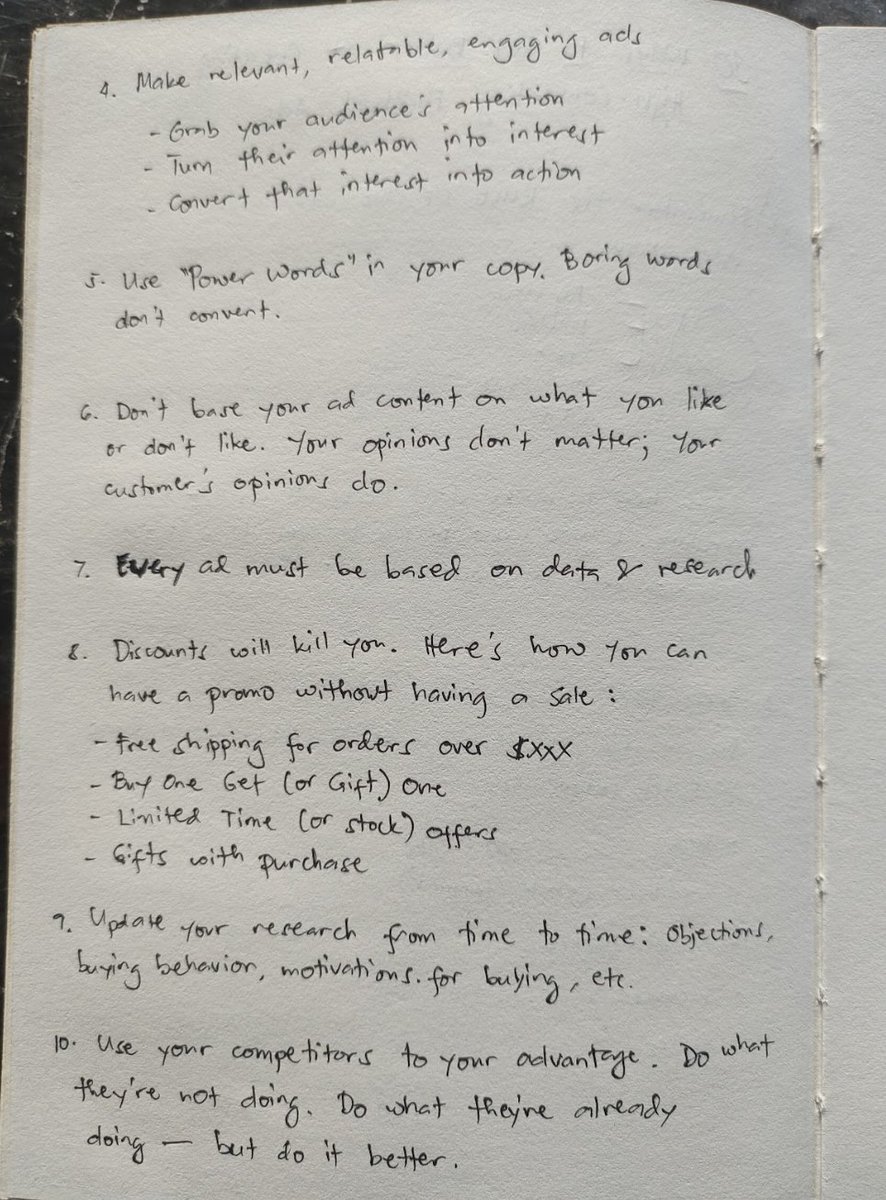 4. Make relevant, relatable, engaging ads
- Grab your audience's attention
- Turn their attention into interest
- Convert that interest into action
5. Use "Power Words" in your copy. Boring words
don't convert.
6. Don't base your ad content on what you like
or don't like. Your opinions don't matter; Your
customer's opinions do.
7. Every ad must be based on data & research
8. Discounts will kill you. Here's how you can
have a promo without having a sale :
- Free shipping for orders over $XXX
- Buy One Get (or Gift) One
- Limited Time (or stock) offers
- Gifts with purchase
9. Update your research from time to time: Objections,
buying behavior, motivations. for buying, etc.
10. Use your competitors to your advantage. Do what
they're not doing. Do what they're already
doing — but do it better.